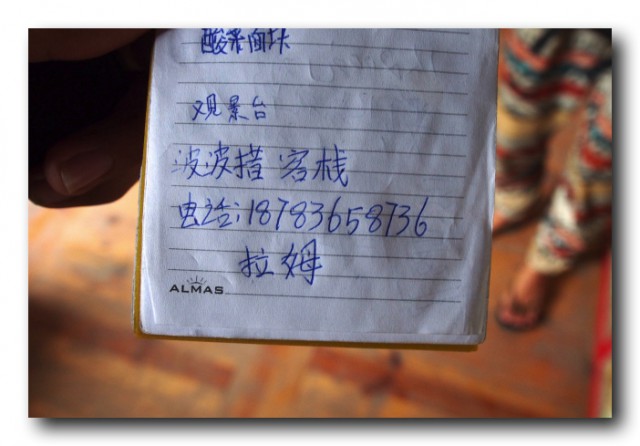 酸菜面块
观景台
波波措 客栈
电话:18783658736
拉姆
ALMAS